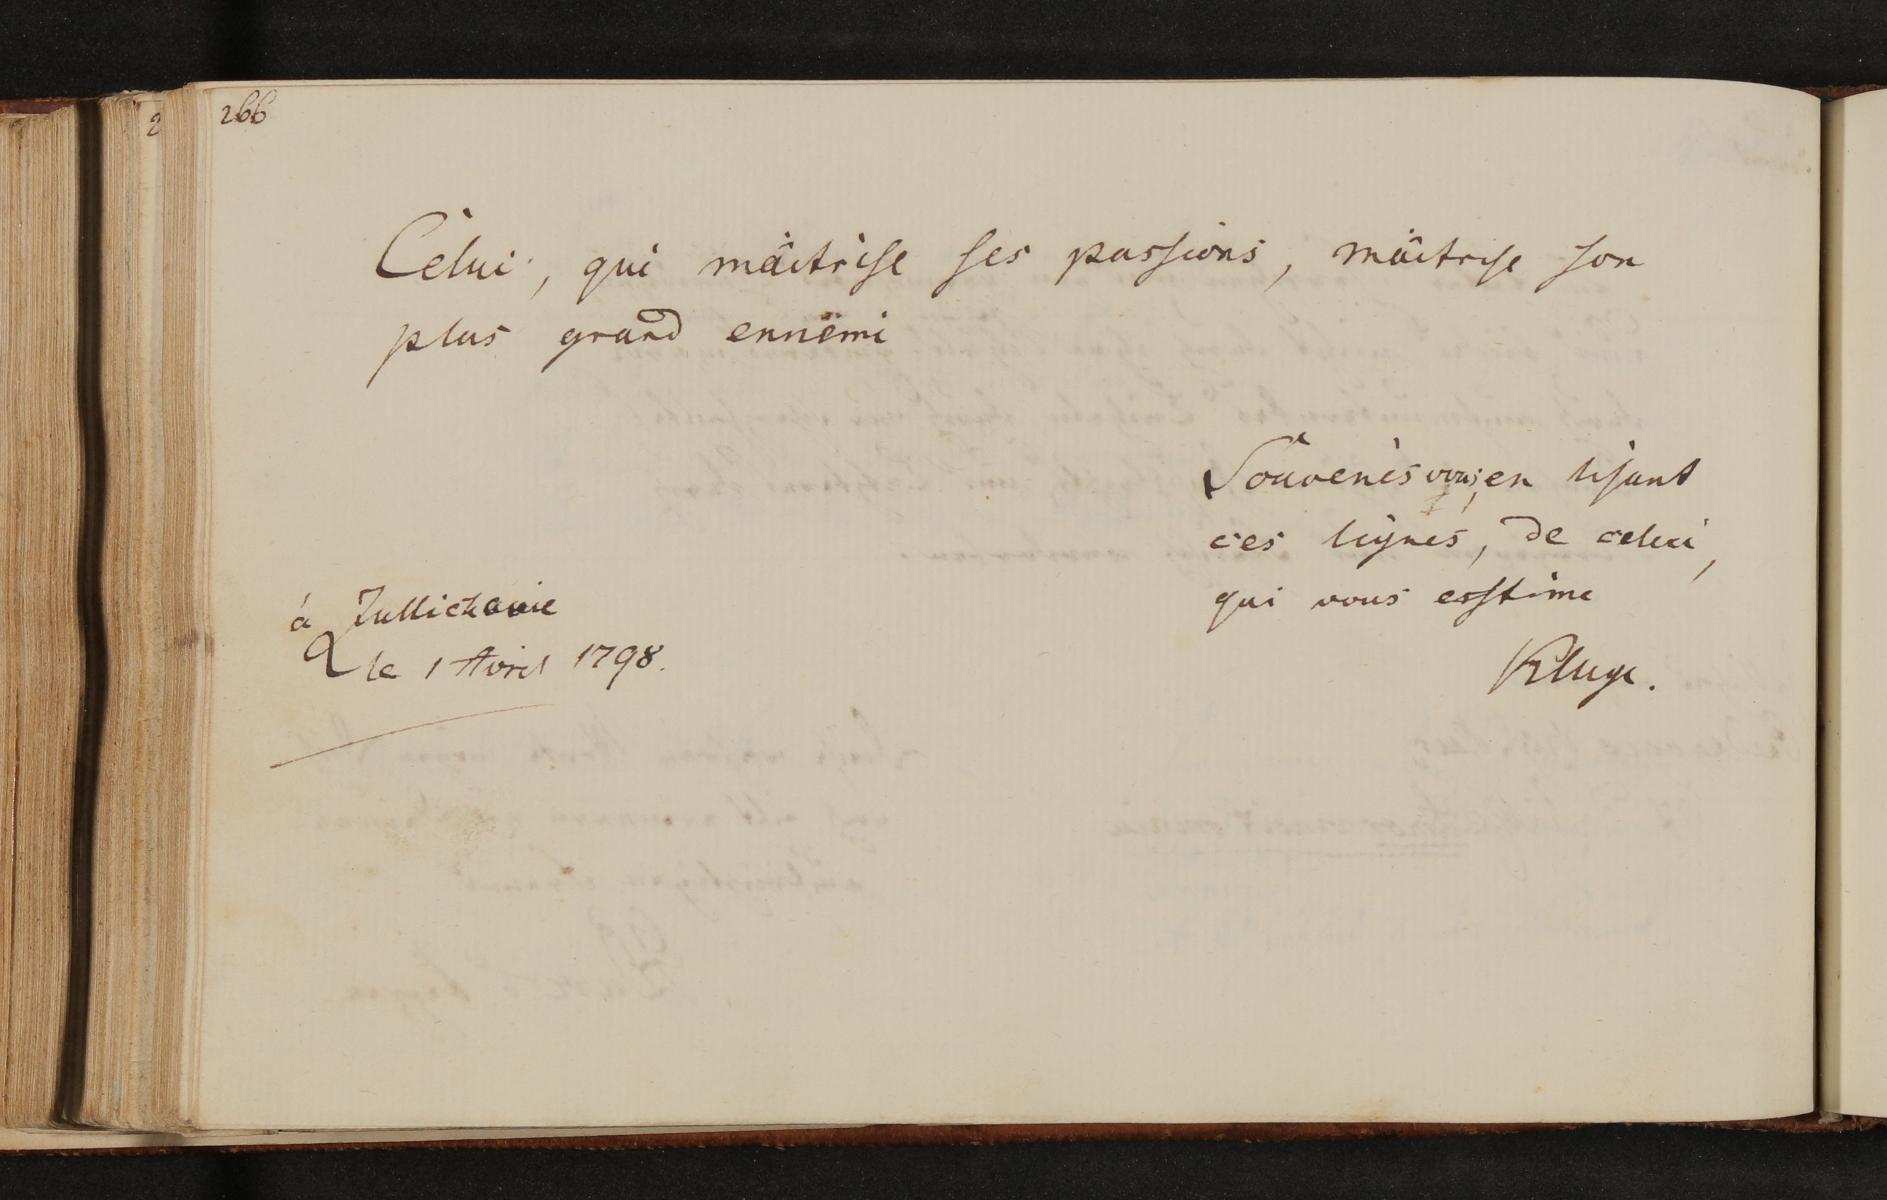 266
Celui, qui mâitrise ses passions, mâitrise son
plus grand ennemi
Souvenès vous, en lisant
ces lignes, de celui,
qui vous esstime
Kluge.
á Zullichavie
le 1 Avril 1798.